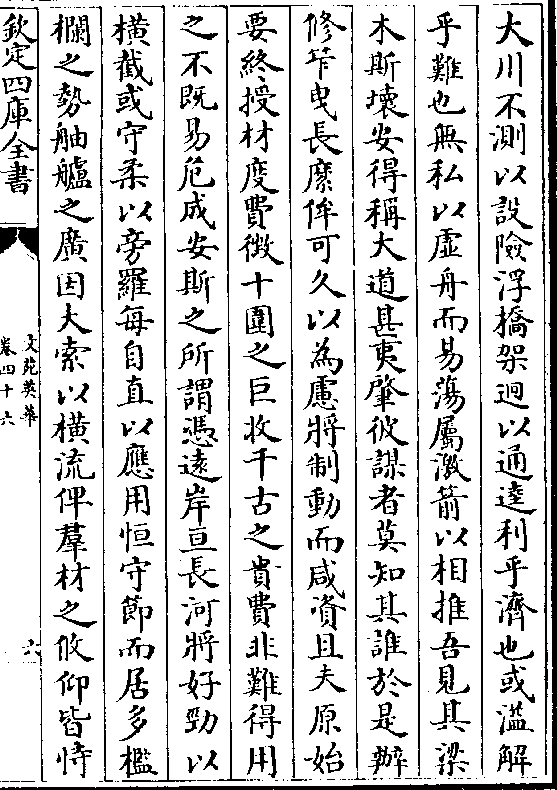 大川不測以設險浮橋架迥以通逵利乎濟也或溢解
乎難也無私以虛舟而易蕩屬激箭以相推吾見其梁
木斯壊安得稱大道甚夷肇彼謀者莫知其誰於是辦
修笮曳長縻侔可久以為慮將制動而咸資且夫原始
要終授材度費徴十圍之巨收千古之貴費非難得用
之不既易危成安斯之所謂憑遠岸亘長河將好勁以
横截或守柔以旁羅每自直以應用恒守節而居多檻
欄之勢舳艫之廣因大索以横流俾羣材之攸仰皆恃
欽定四庫全書
文苑英華
卷四十六
六